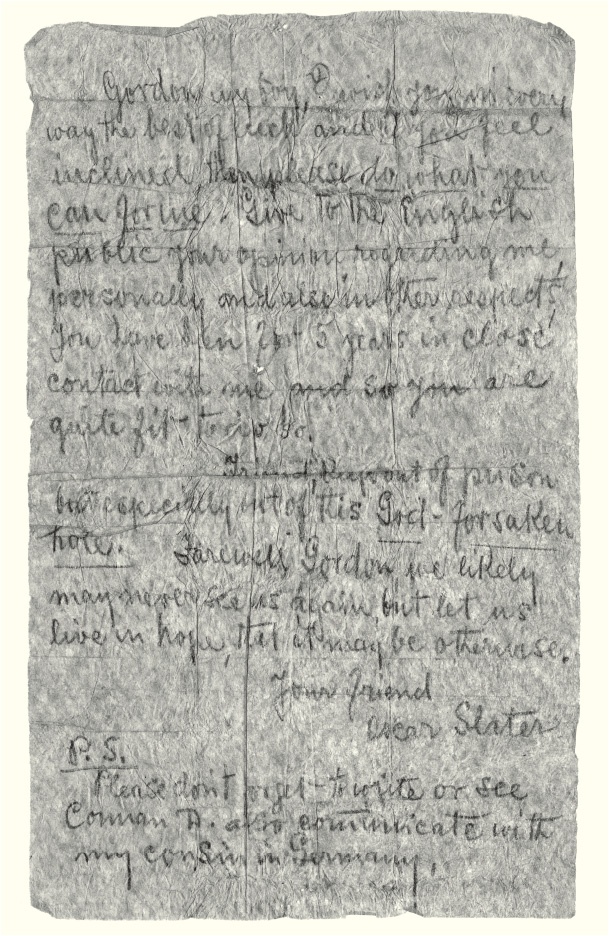 Gordon my boy, I wish you in every
way the best of luck and if you feel
inclined, then please do what you
can for me. Give to the English
public your opinion regarding me,
personally and also in other respects.
You have been for 5 years in close
contact with me and so you are
quite fit to do so.
Friend, keep out of prison
but especially out of this God-forsaken
hole. Farewell, Gordon we likely
may never see us again, but let us
live in hope, that it may be otherwise.
Your friend
Oscar Slater
P.S.
Please don't forget to write or see
Connan D. also communicate with
my consin in Germany.